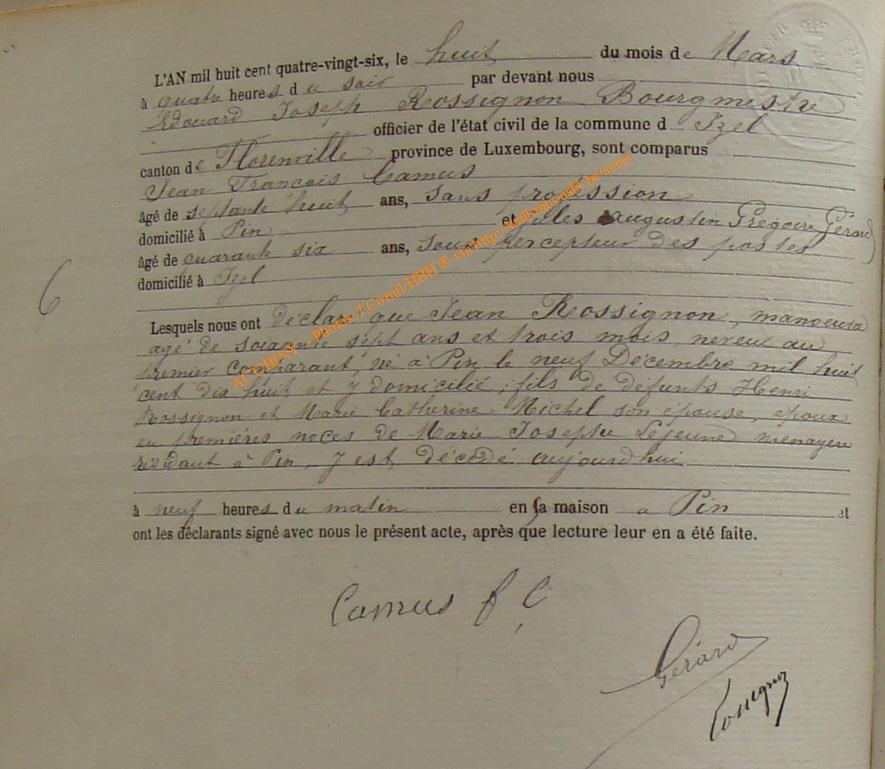 L'AN mil huit cent quatre-vingt-six, le huit du mois de Mars
à quatre heures du soir par devant nous
Edouard Joseph Rossignon Bourgmestre
officier de l'état civil de la commune d Izel
canton de Florenville province de Luxembourg, sont comparus
Jean François Camus
âgé de septante huit ans, sans profession
domicilié à Pin et Jules Augustin Grégoire Gérard
âgé de quarante six ans, sous percepteur des postes
domicilié à Izel
6
Lesquels nous ont déclaré que Jean Rossignon, manoeuvre
agé de soixante sept ans et trois mois, neveu au
premier comparant, né à Pin le neuf Décembre mil huit
cent dix huit et y domicilié, fils de défunts Henri
Rossignon et Marie Catherine Michel son épouse, époux
en premières noces de Marie Josephe Lejeune ménagère
résidant à Pin, y est décédé aujourd'hui
à neuf heures du matin en sa maison a Pin et
ont les déclarants signé avec nous le présent acte, après que lecture leur en a été faite.
Camus f ç
Gérard
Rossignon